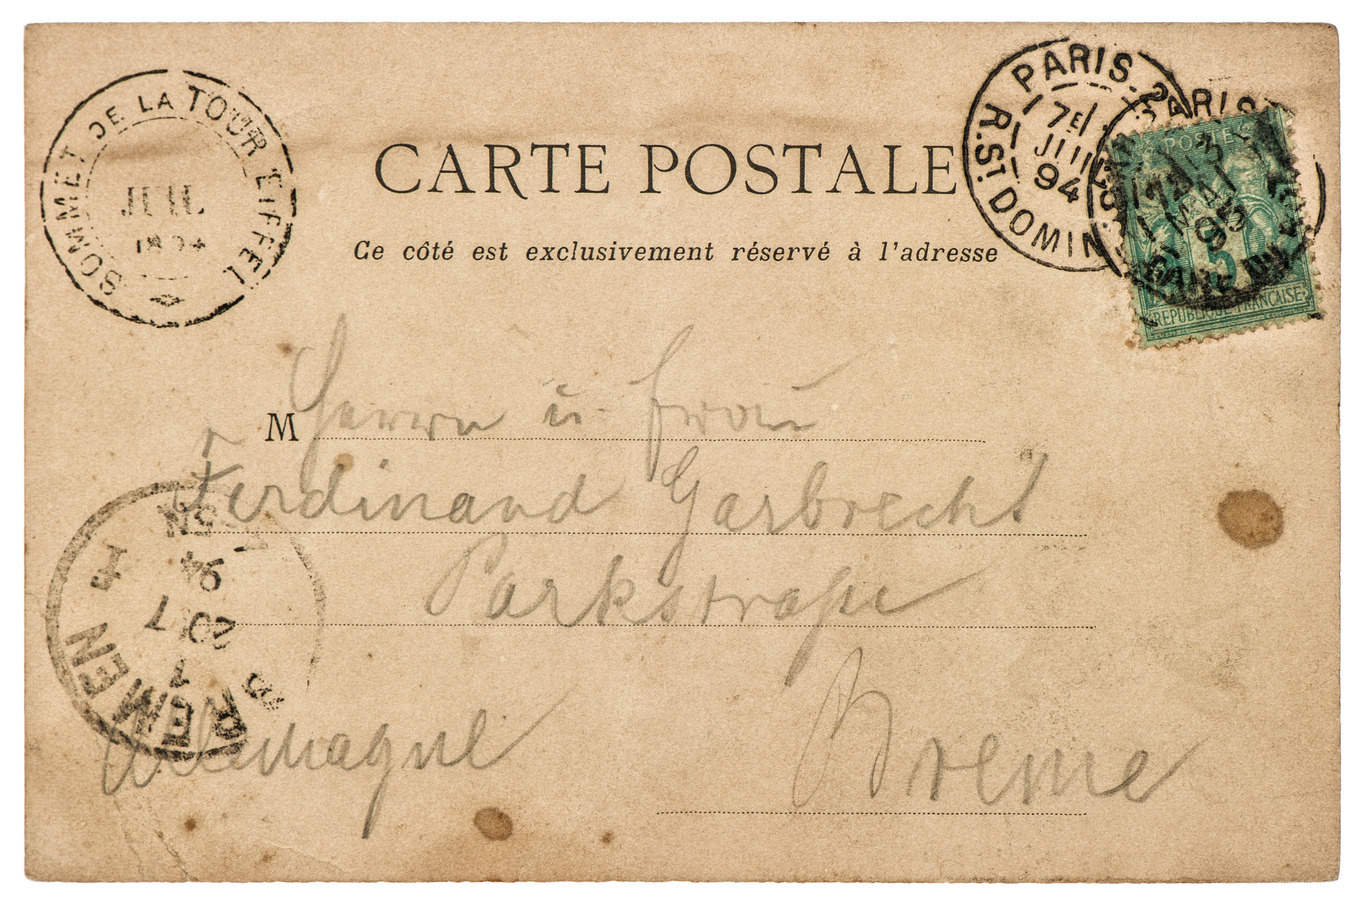 SOMMET DE LA TOUR EIFFEL
JUIL
1894
CARTE POSTALE
Ce côté est exclusivement réservé à l'adresse
PARIS
R. St DOMIN
7E
94
PARIS
POSTES
95
5
REPUBLIQUE FRANÇAISE
M Herrn u. Frau
Ferdinand Garbrecht
Parkstraße
Breme
Allemagne
BREMEN
1
20 7
94